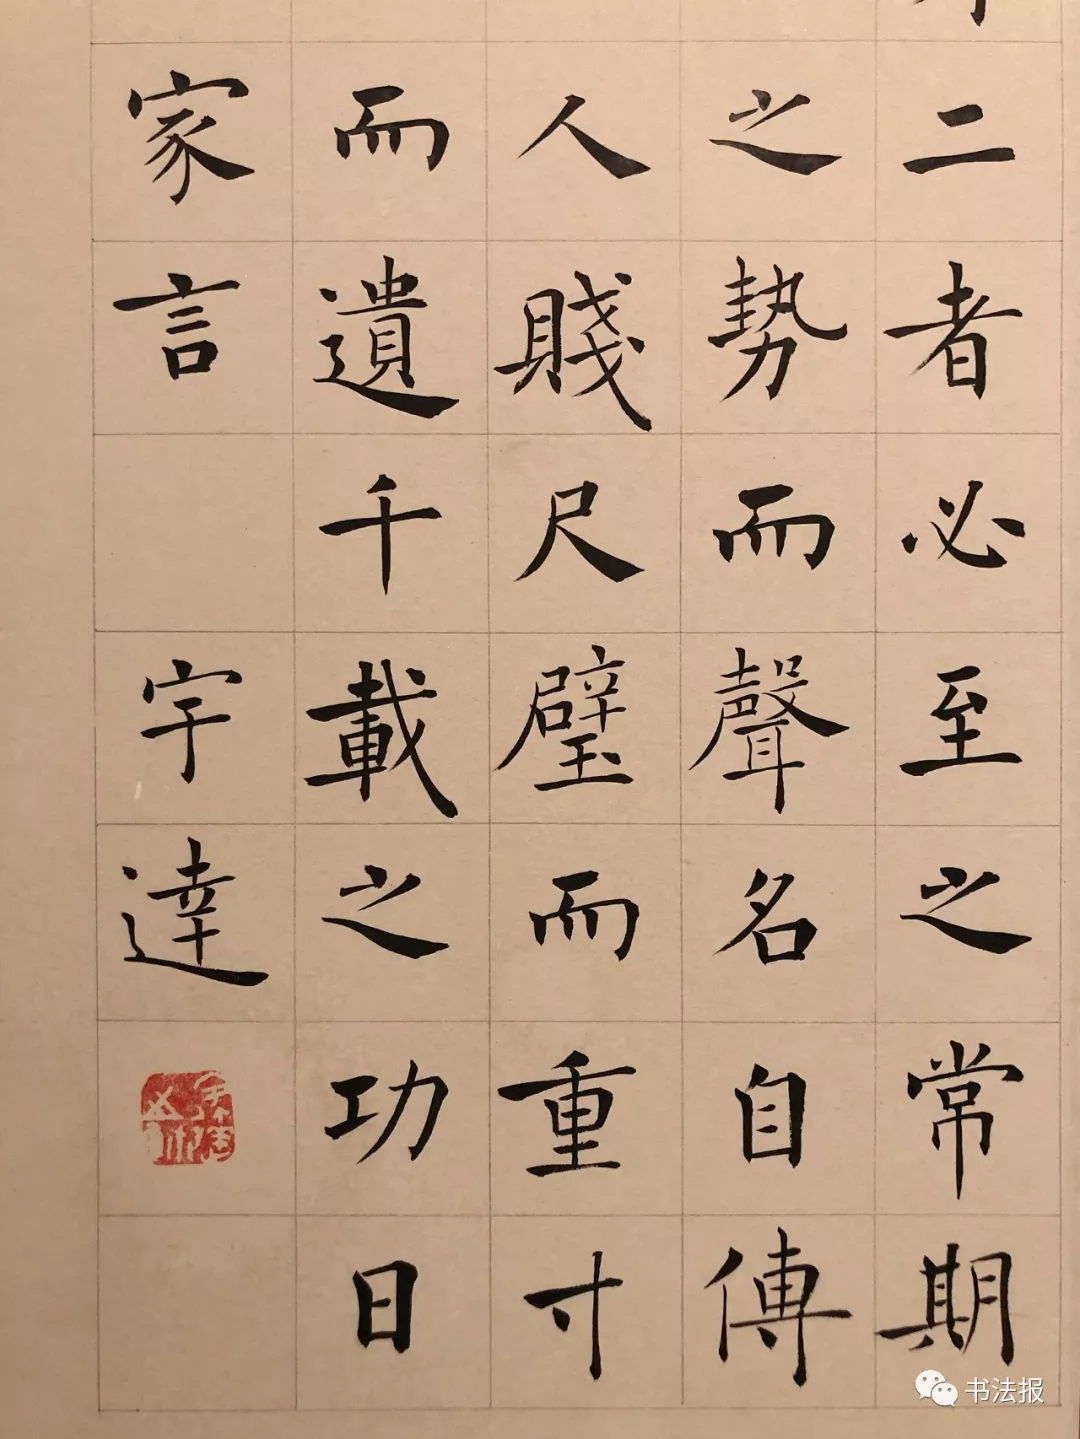 二者必至之常期
之勢而聲名自傳
人賤尺璧而重寸
而遺千載之功日
家言 宇達
书法报